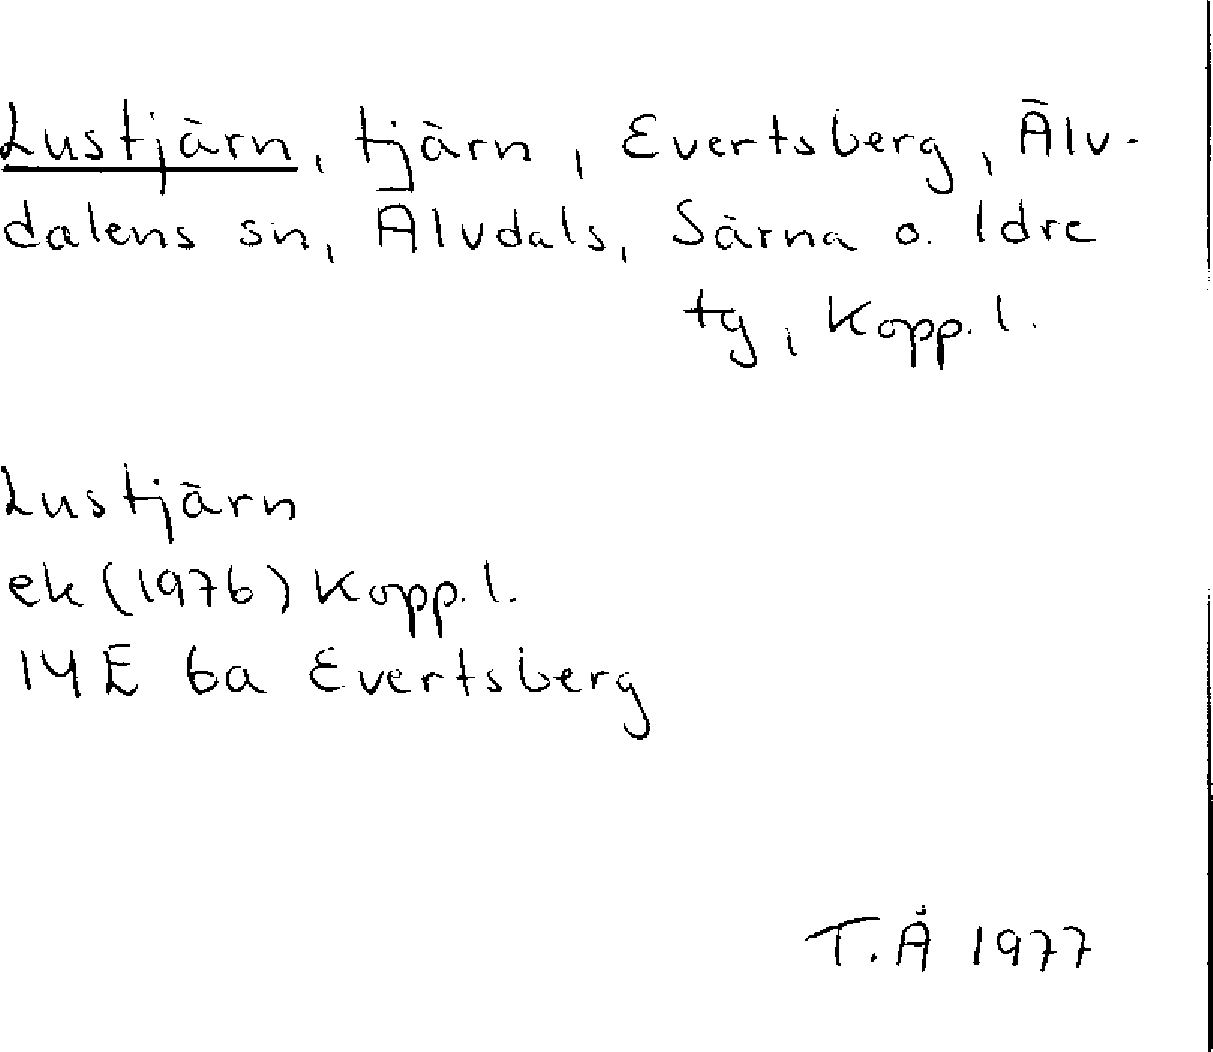 Lustjärn, tjärn, Evertsberg, Älv-
dalens sn, Älvdals, Särna o. Idre
tg, Kopp. l.
Lustjärn
ek (1976) Kopp. l.
14 E 6a Evertsberg
T. Å 1977